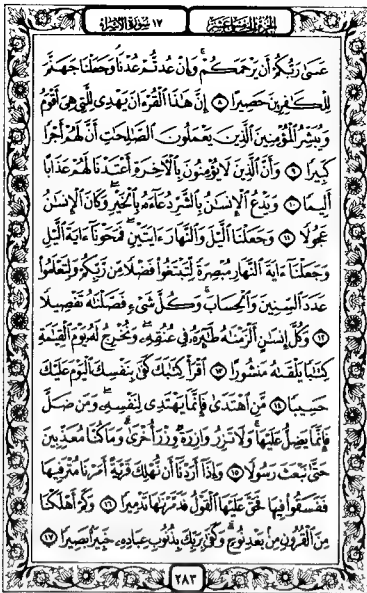 الجزء الخامس عشر
١٧ سورة الإسراء
عَسَىٰ رَبُّكُمْ أَن يَرْحَمَكُمْ ۚ وَإِنْ عُدتُّمْ عُدْنَا ۘ وَجَعَلْنَا جَهَنَّمَ
لِلْكَافِرِينَ حَصِيرًا ٨ إِنَّ هَٰذَا الْقُرْءَانَ يَهْدِى لِلَّتِى هِىَ أَقْوَمُ
وَيُبَشِّرُ الْمُؤْمِنِينَ الَّذِينَ يَعْمَلُونَ الصَّالِحَاتِ أَنَّ لَهُمْ أَجْرًا
كَبِيرًا ٩ وَأَنَّ الَّذِينَ لَا يُؤْمِنُونَ بِالْآخِرَةِ أَعْتَدْنَا لَهُمْ عَذَابًا
أَلِيمًا ١٠ وَيَدْعُ الْإِنسَانُ بِالشَّرِّ دُعَاءَهُ بِالْخَيْرِ ۖ وَكَانَ الْإِنسَانُ
عَجُولًا ١١ وَجَعَلْنَا اللَّيْلَ وَالنَّهَارَ ءَايَتَيْنِ ۖ فَمَحَوْنَا ءَايَةَ اللَّيْلِ
وَجَعَلْنَا ءَايَةَ النَّهَارِ مُبْصِرَةً لِّتَبْتَغُوا فَضْلًا مِّن رَّبِّكُمْ وَلِتَعْلَمُوا
عَدَدَ السِّنِينَ وَالْحِسَابَ ۚ وَكُلَّ شَىْءٍ فَصَّلْنَاهُ تَفْصِيلًا
١٢ وَكُلَّ إِنسَانٍ أَلْزَمْنَاهُ طَائِرَهُ فِى عُنُقِهِ ۖ وَنُخْرِجُ لَهُ يَوْمَ الْقِيَامَةِ
كِتَابًا يَلْقَاهُ مَنشُورًا ١٣ اقْرَأْ كِتَابَكَ كَفَىٰ بِنَفْسِكَ الْيَوْمَ عَلَيْكَ
حَسِيبًا ١٤ مَّنِ اهْتَدَىٰ فَإِنَّمَا يَهْتَدِى لِنَفْسِهِ ۖ وَمَن ضَلَّ
فَإِنَّمَا يَضِلُّ عَلَيْهَا ۚ وَلَا تَزِرُ وَازِرَةٌ وِزْرَ أُخْرَىٰ ۗ وَمَا كُنَّا مُعَذِّبِينَ
حَتَّىٰ نَبْعَثَ رَسُولًا ١٥ وَإِذَا أَرَدْنَا أَن نُّهْلِكَ قَرْيَةً أَمَرْنَا مُتْرَفِيهَا
فَفَسَقُوا فِيهَا فَحَقَّ عَلَيْهَا الْقَوْلُ فَدَمَّرْنَاهَا تَدْمِيرًا ١٦ وَكَمْ أَهْلَكْنَا
مِنَ الْقُرُونِ مِن بَعْدِ نُوحٍ ۗ وَكَفَىٰ بِرَبِّكَ بِذُنُوبِ عِبَادِهِ خَبِيرًا بَصِيرًا ١٧
٢٨٣